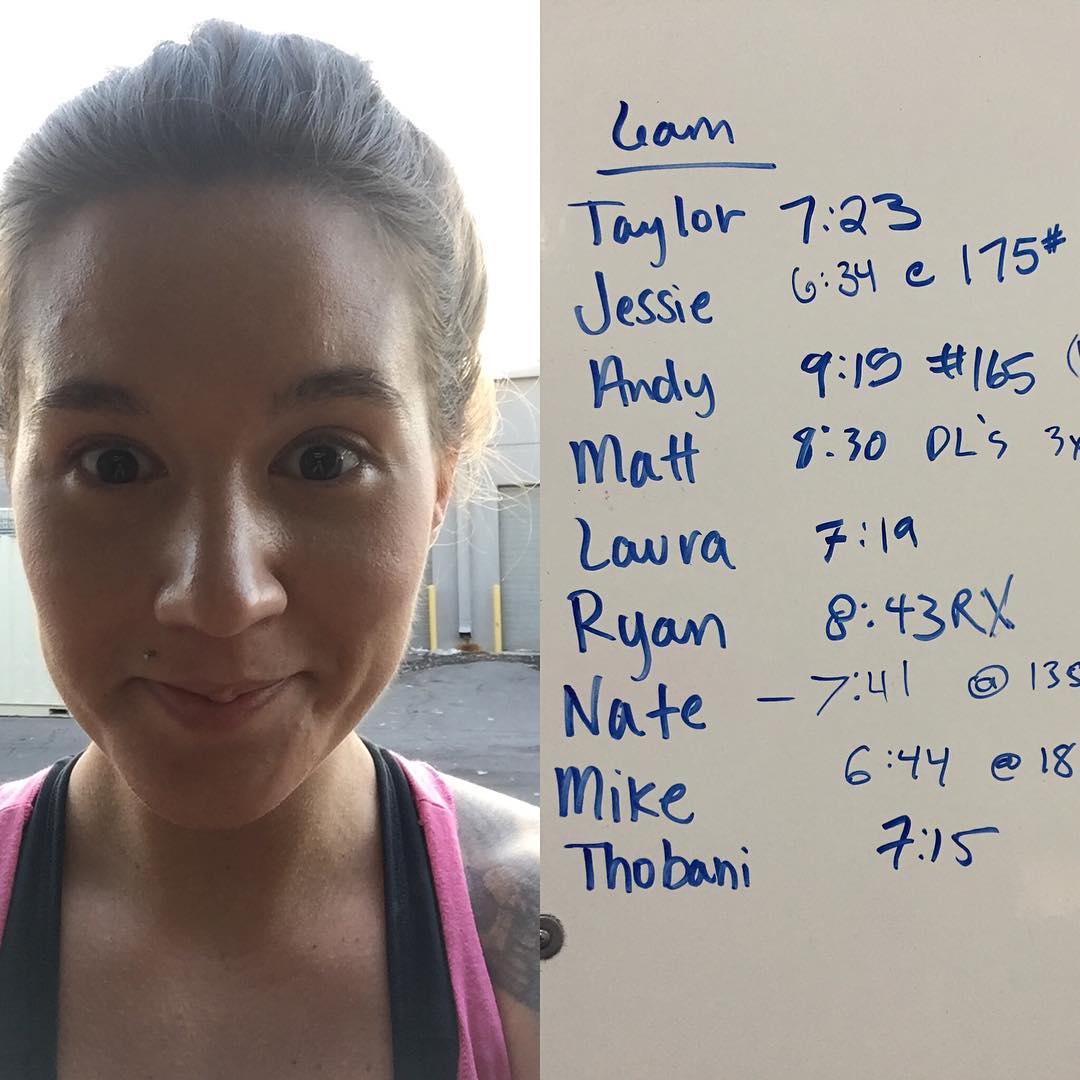 6am
Taylor 7:23
Jessie 6:34 @ 175#
Andy 9:19 #165 (
Matt 8:30 DL's 3x
Laura 7:19
Ryan 8:43 RX
Nate - 7:41 @ 135
Mike 6:44 @ 18
Thobani 7:15